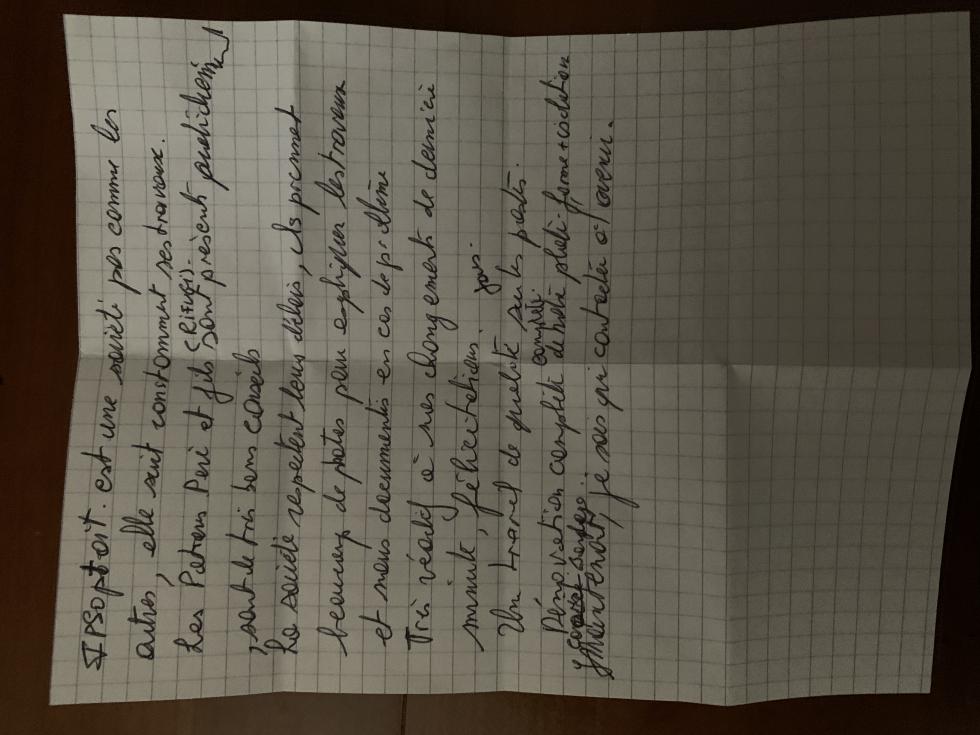 IPSOptoit. est une société pas comme les
autres, elle suit constamment ses travaux.
Les Patrons Père et fils (RIFUSI). sont présent
, sont de très bons conseils
La société respectent leurs délais, ils prennent
beaucoup de photos pour expliquer les travaux
et nous documentés en cas de problème
Très réactif à nos changements de dernière
minute, félicitations.
Un travail de qualité sur les
Rénovation complète de notre
Maintenant, je sais qui contacter à l'avenir.